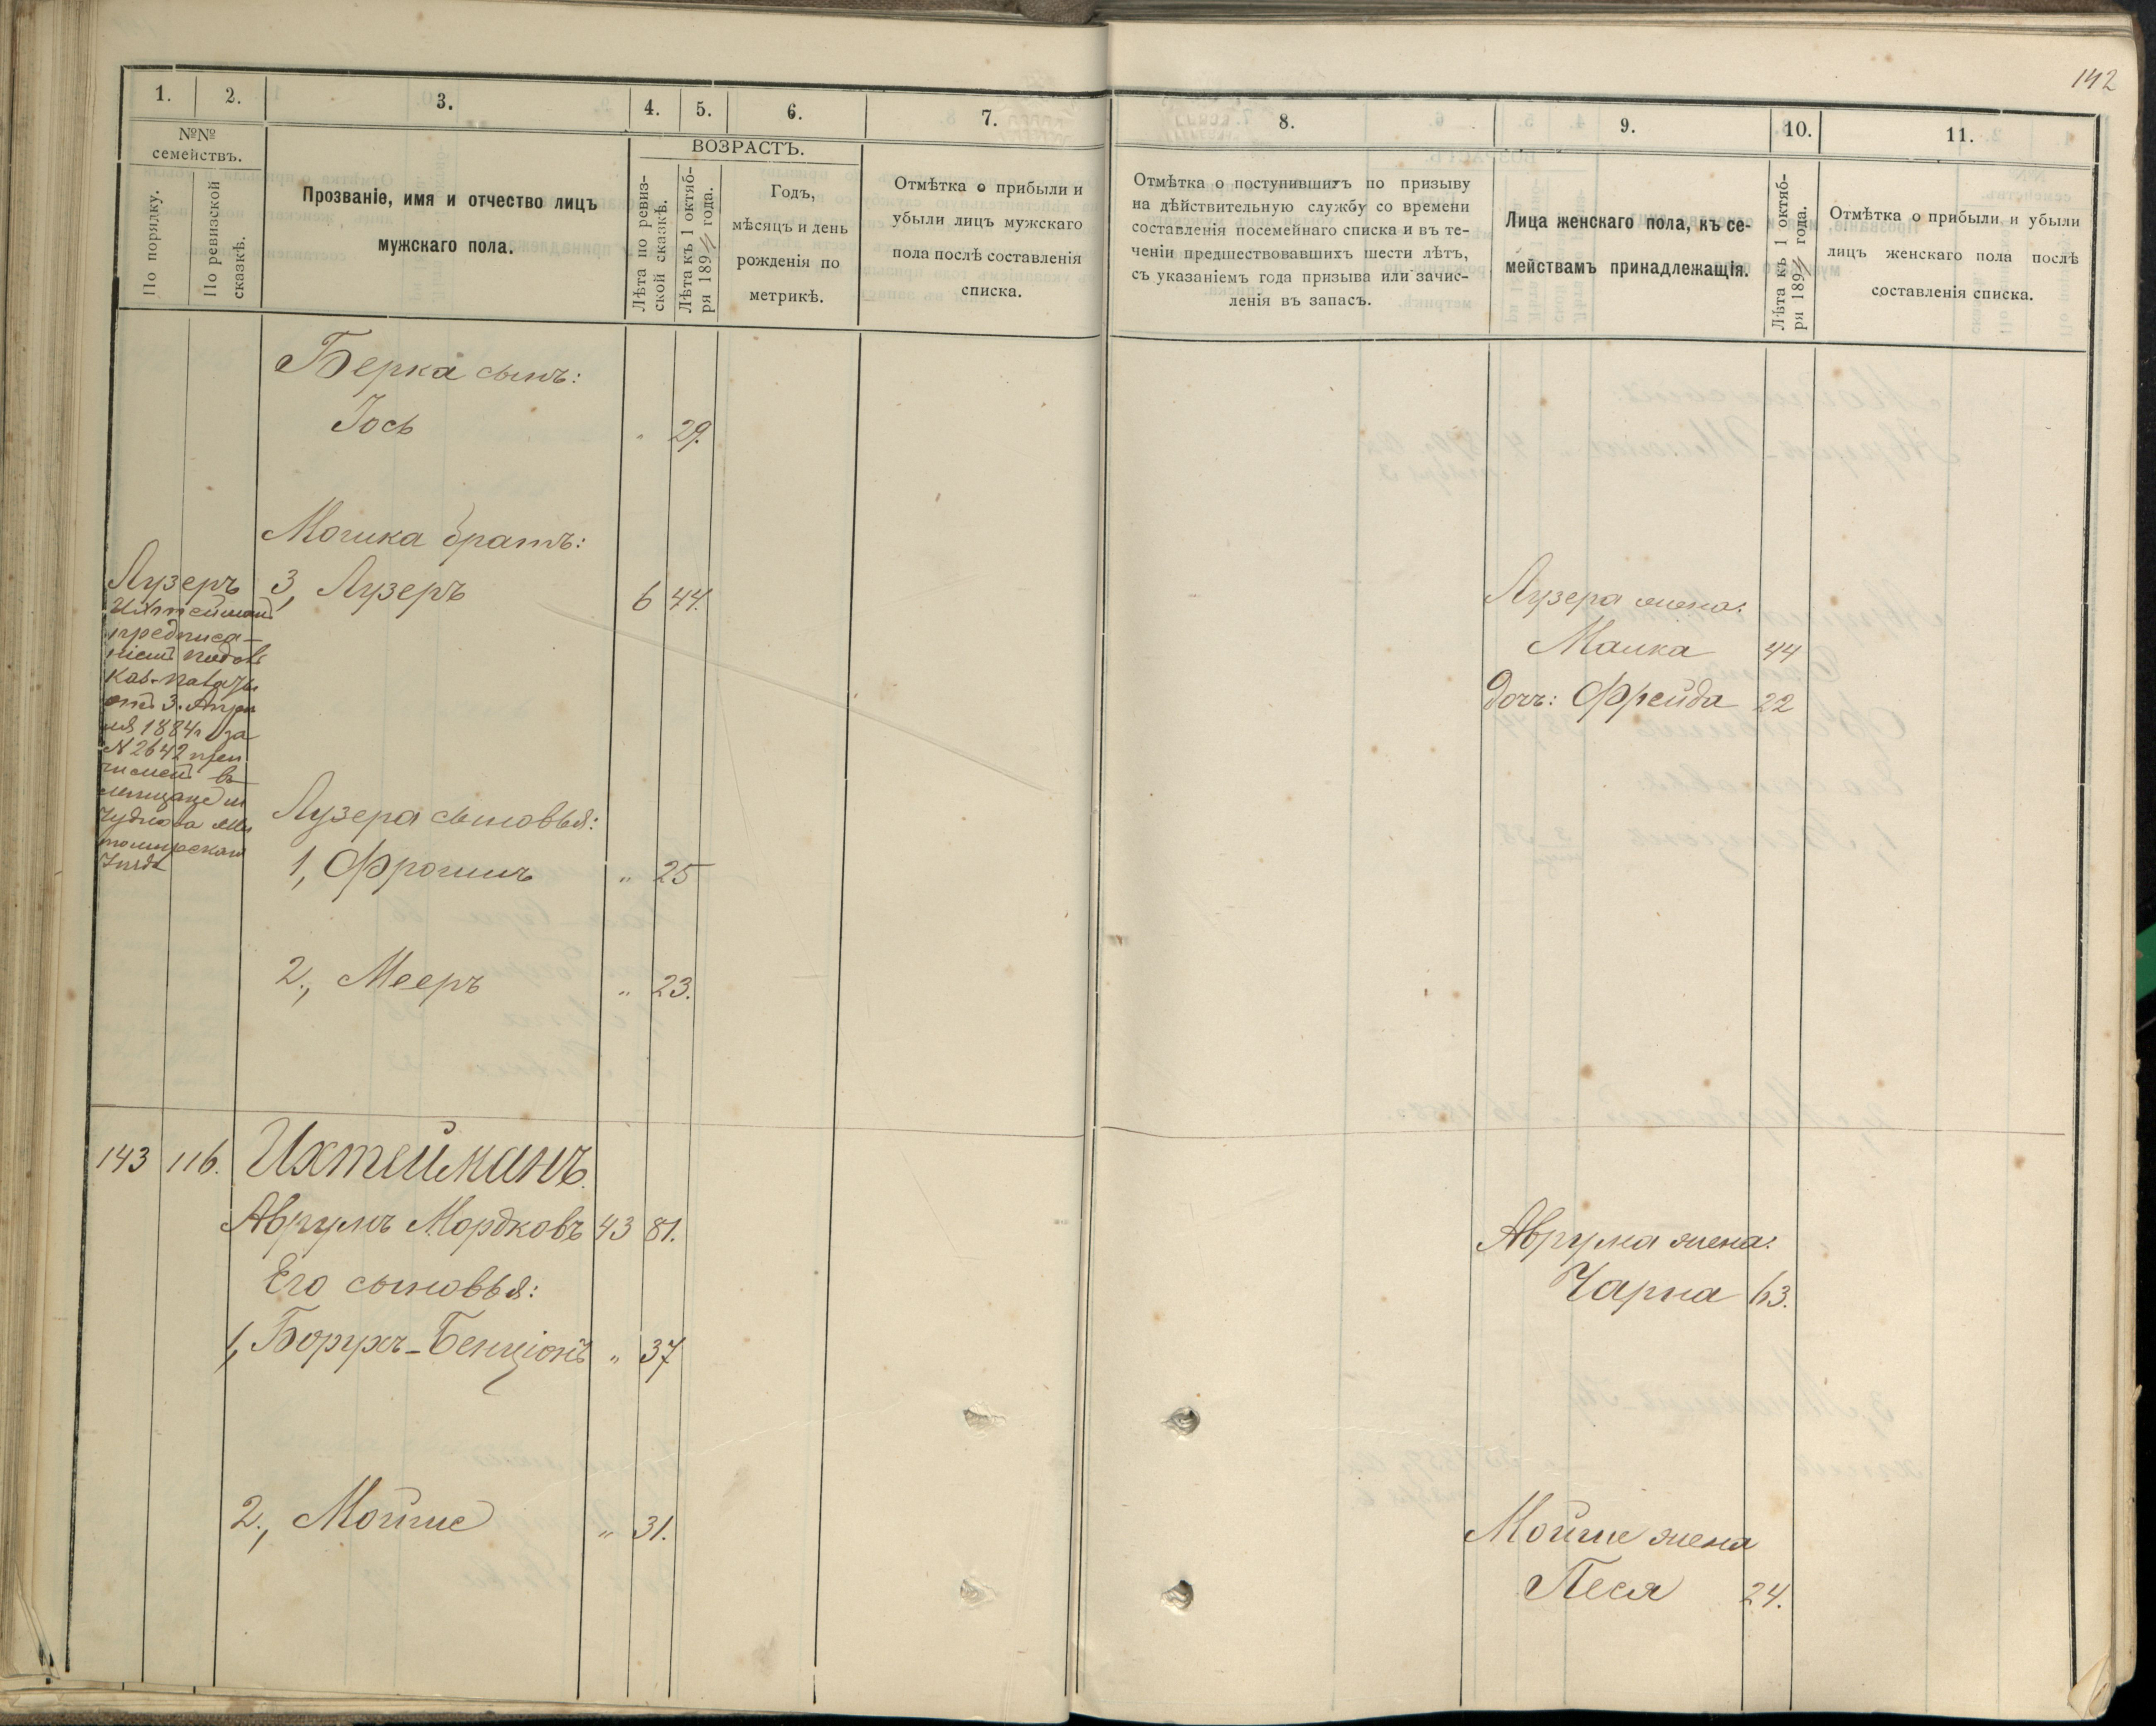 142
1. 2. 3. 4. 5. 6. 7. 8. 9. 10. 11.
№№
семействъ.
По порядку.
По ревизской
сказкѣ.
Прозваніе, имя и отчество лицъ
мужскаго пола.
ВОЗРАСТЪ.
Лѣта по ревиз-
ской сказкѣ.
Лѣта къ 1 октяб-
ря 189 года.
Годъ,
мѣсяцъ и день
рожденія по
метрикѣ.
Отмѣтка о прибыли и
убыли лицъ мужскаго
пола послѣ составленія
списка.
Отмѣтка о поступившихъ по призыву
на дѣйствительную службу со времени
составленія посемейнаго списка и въ те-
ченіи предшествовавшихъ шести лѣтъ,
съ указаніемъ года призыва или зачис-
ленія въ запасъ.
Лица женскаго пола, къ се-
мействамъ принадлежащія.
Лѣта къ 1 октяб-
ря 189 года.
Отмѣтка о прибыли и убыли
лицъ женскаго пола послѣ
составленія списка.
Берка сынъ:
Іось " 29.
Мошка братъ:
3, Лузеръ 6 44.
Лузеръ
Ихтейманъ
предписа-
ніемъ Подоль
Каз. Палаты
отъ 3. Апрѣ
ля 1884 г. за
№ 2642
въ
мещане м
Чуднова Жи
томирскаго
Уѣзда
Лузера жена:
Малка 44
дочь: Фрейда 22
Лузера сыновья:
1, Фроимъ " 25
2, Мееръ " 23.
143 116. Ихтейманъ.
Аврумъ Мордковъ 43 81.
Его сыновья:
1, Борухъ-Бенціонъ " 37
2, Мойше " 31.
Аврума жена:
Чарна 63.
Мойше жена
Песя 24.